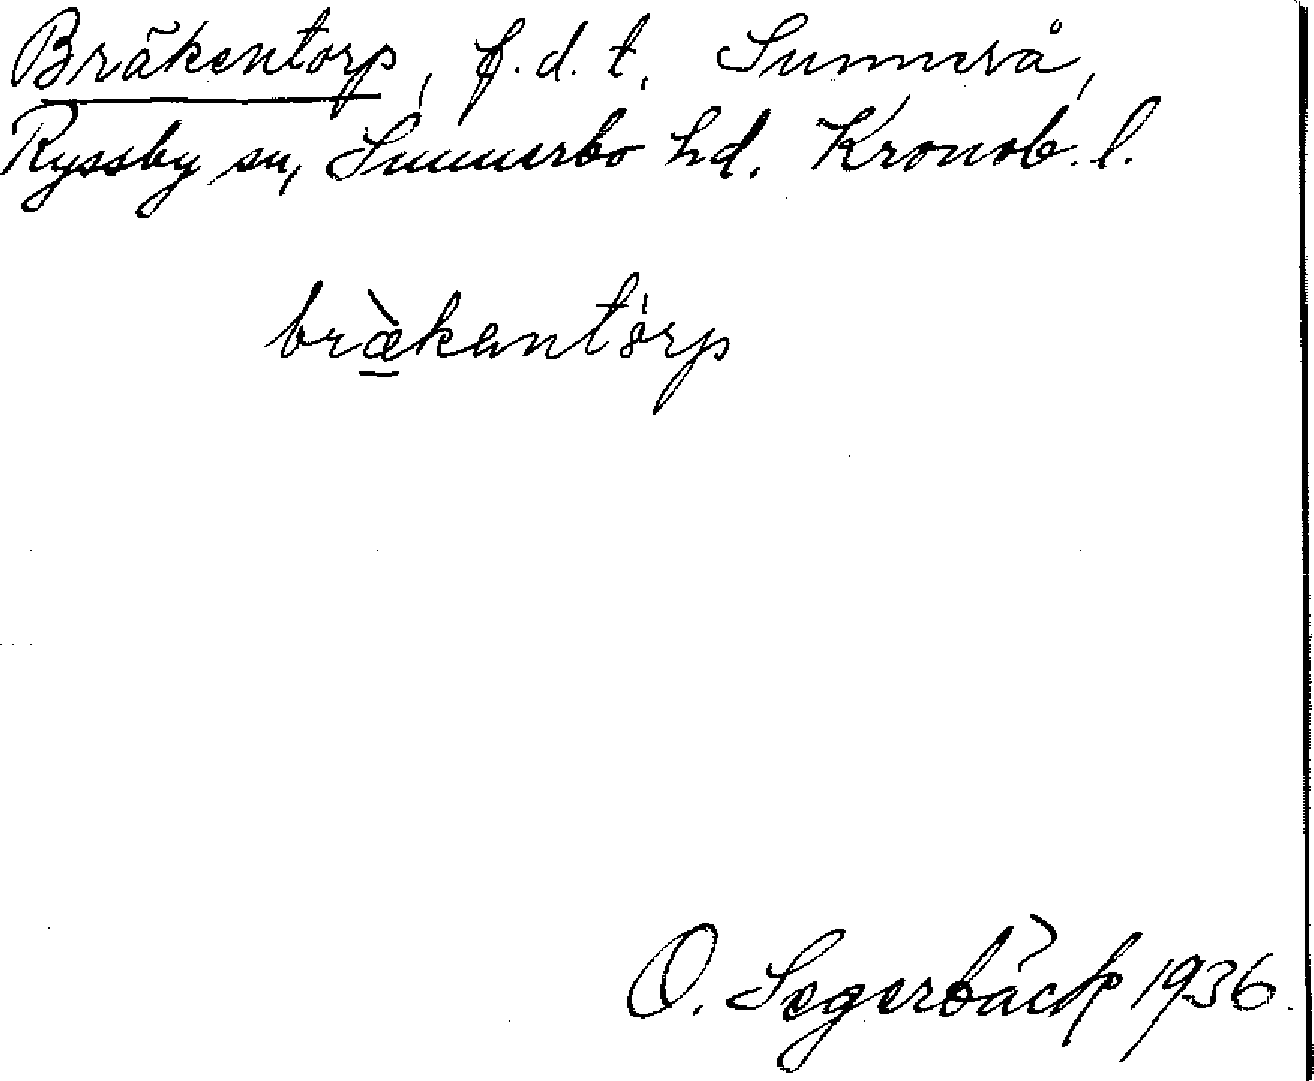 Bräkentorp, f.d.t. Sunnerå,
Ryssby sn, Sunnerbo hd. Kronob. l.
bræ̀kentòrp
O. Segerbäck 1936.